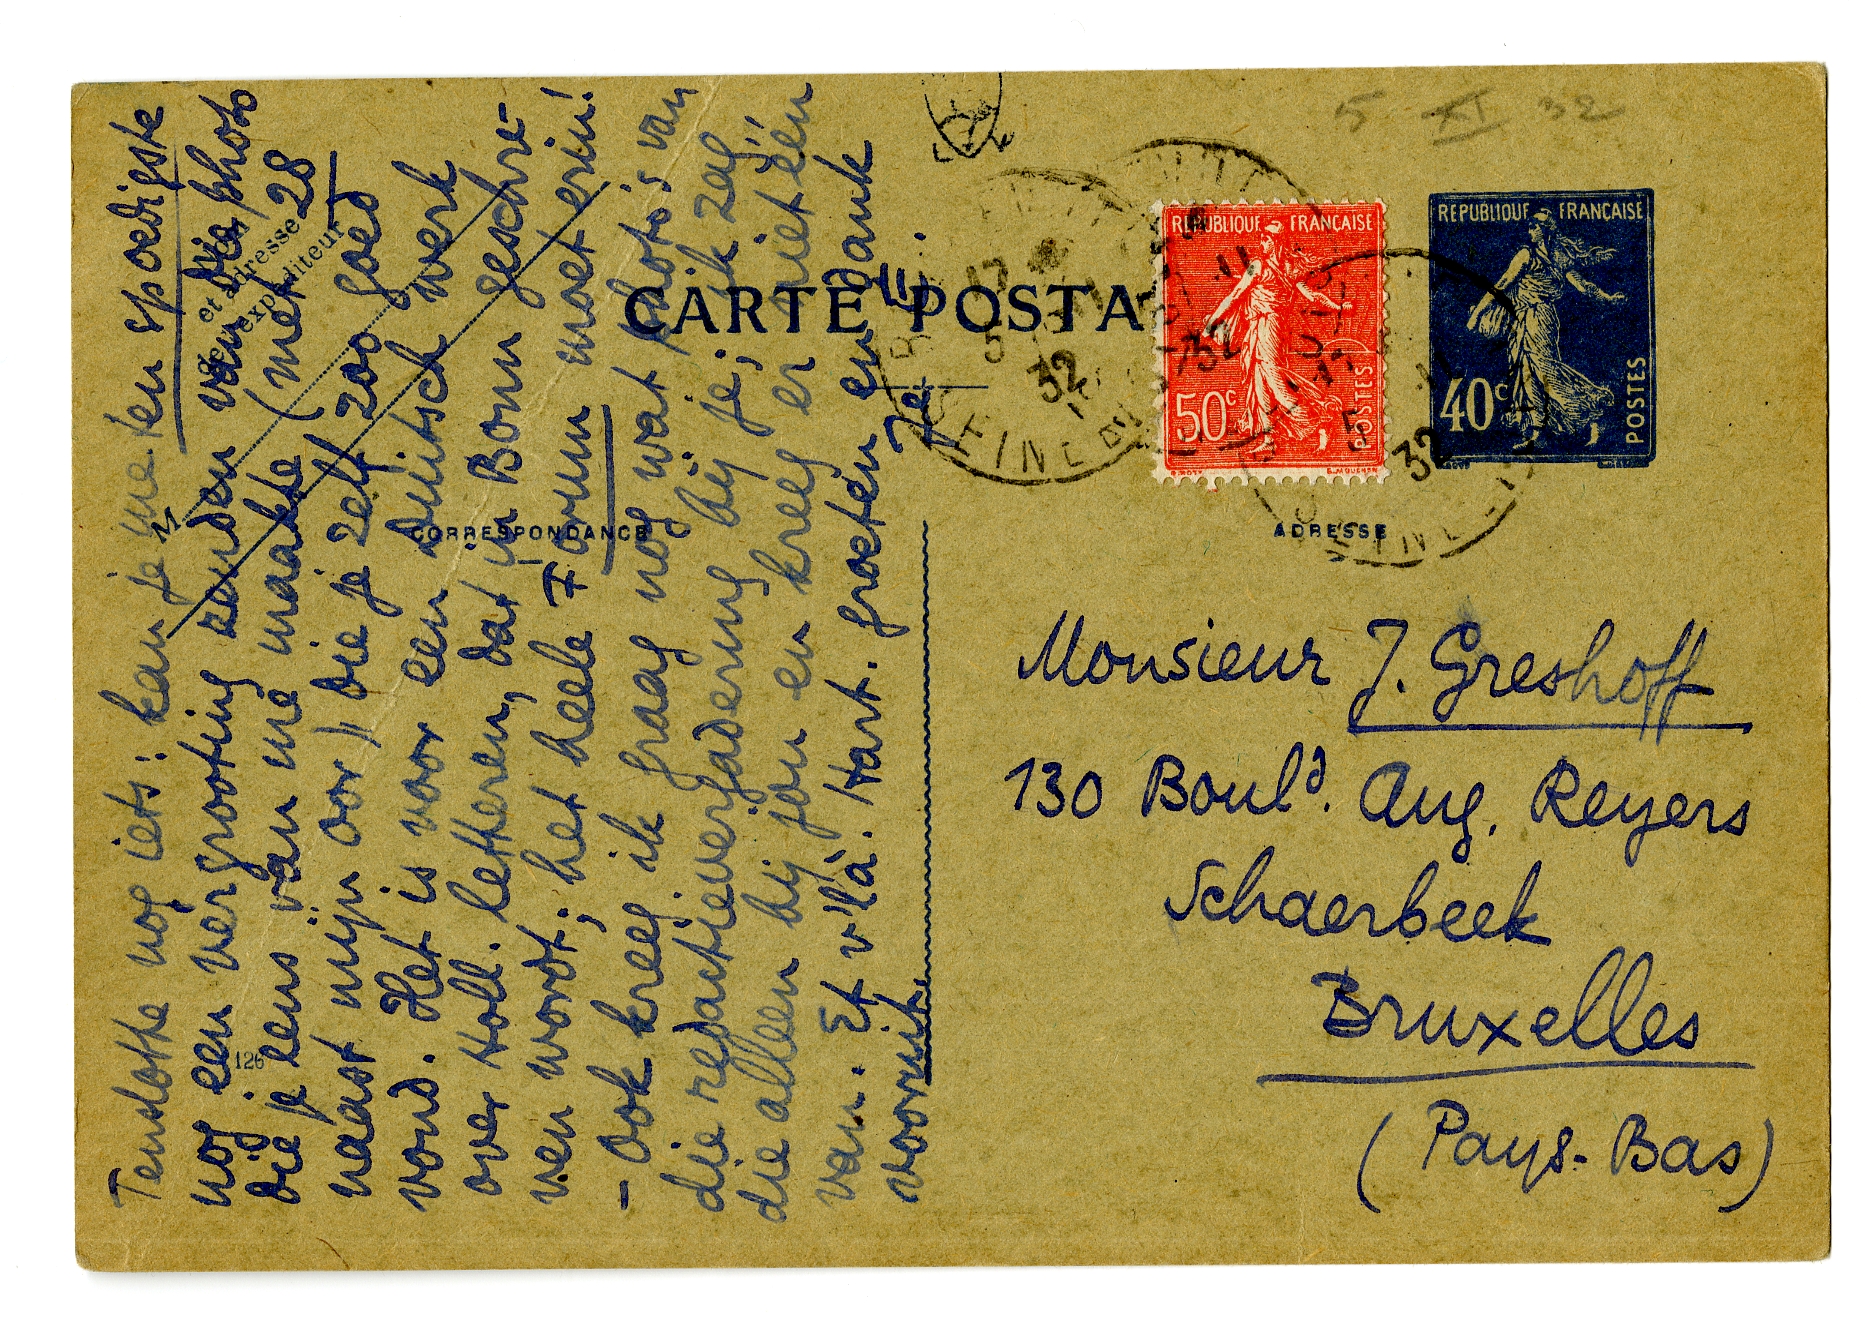 5 XI 32
RÉPUBLIQUE FRANÇAISE
50c
POSTES
RÉPUBLIQUE FRANÇAISE
40c
POSTES
CARTE POSTA
CORRESPONDANCE
ADRESSE
et adresse
de l'expéditeur
M
126
17
5
32
32
5
32
Tenslotte nog iets: kan je me ten spoedigste
nog een vergrooting zenden van die photo
die je eens van me maakte (met 28
naast mijn oor) die je zelf zoo goed
vond. Het is voor een Duitsch werk
over Holl. letteren, dat in Bonn geschre-
ven wordt; het heele Forum moet erin!
– Ook kreeg ik graag nog wat photo's van
die redactievergadering bij je; ik zag
die alleen bij jou en kreeg er niet één
van. Et v'là. Hart. groeten en dank
vooruit. Je E.
Monsieur J. Greshoff
130 Bould. Aug. Reyers
Schaerbeek
Bruxelles
(Pays-Bas)